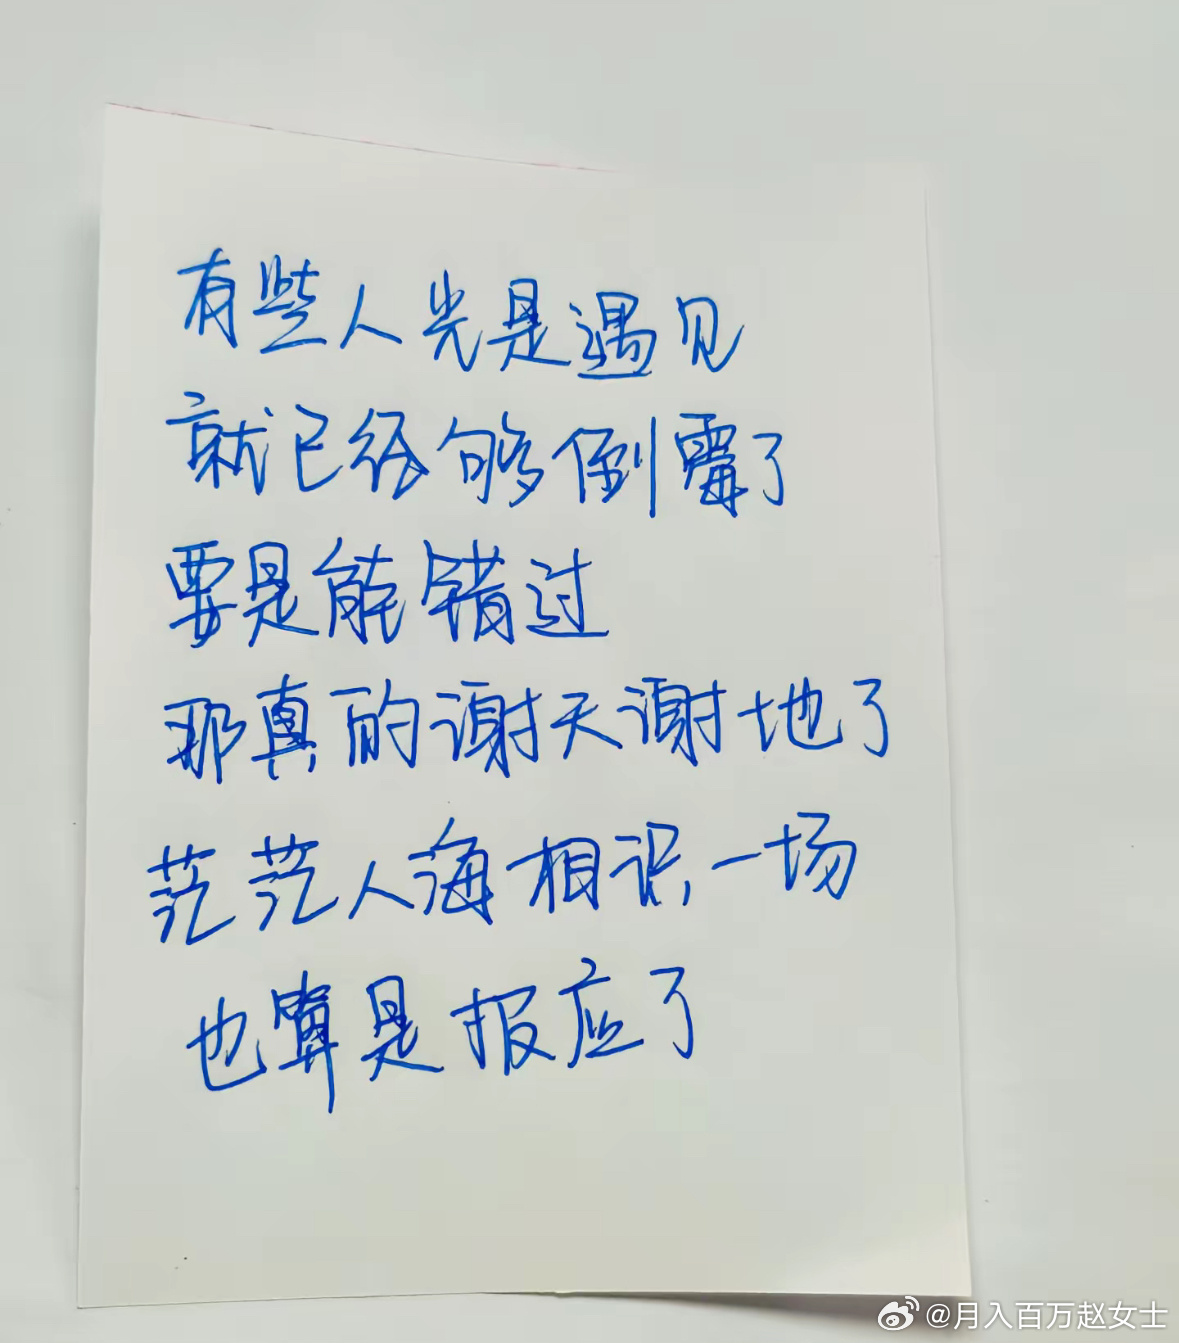 有些人光是遇见
就已经够倒霉了
要是能错过
那真的谢天谢地了
茫茫人海相识一场
也算是报应了
@月入百万赵女士